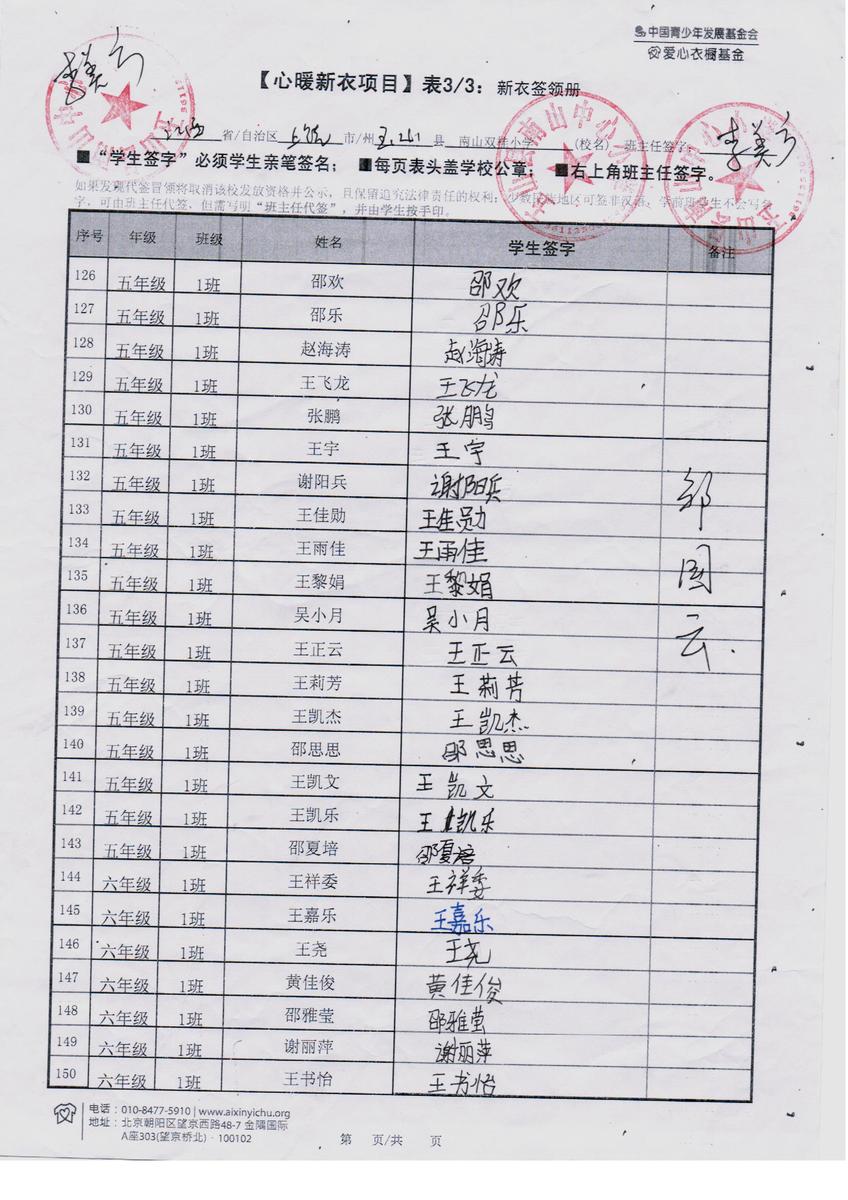 中国青少年发展基金会
爱心衣橱基金
【心暖新衣项目】表3/3：新衣签领册
江西 省/自治区 上饶 市/州 玉山 县 南山双桂小学 (校名) 班主任签字：
■“学生签字”必须学生亲笔签名；■每页表头盖学校公章；■右上角班主任签字。
如果发现代签冒领将取消该校发放资格并公示，且保留追究法律责任的权利；少数民族地区可签非汉语；学前班学生不会写名
字，可由班主任代签，但需写明“班主任代签”，并由学生按手印。
序号 年级 班级 姓名 学生签字 备注
126 五年级 1班 邵欢 邵欢
127 五年级 1班 邵乐 邵乐
128 五年级 1班 赵海涛 赵海涛
129 五年级 1班 王飞龙 王飞龙
130 五年级 1班 张鹏 张鹏
131 五年级 1班 王宇 王宇
132 五年级 1班 谢阳兵 谢阳兵
133 五年级 1班 王佳勋 王佳勋
134 五年级 1班 王雨佳 王雨佳
135 五年级 1班 王黎娟 王黎娟
136 五年级 1班 吴小月 吴小月
137 五年级 1班 王正云 王正云
138 五年级 1班 王莉芳 王莉芳
139 五年级 1班 王凯杰 王凯杰
140 五年级 1班 邵思思 邵思思
141 五年级 1班 王凯文 王凯文
142 五年级 1班 王凯乐 王凯乐
143 五年级 1班 邵夏培 邵夏培
144 六年级 1班 王祥委 王祥委
145 六年级 1班 王嘉乐 王嘉乐
146 六年级 1班 王尧 王尧
147 六年级 1班 黄佳俊 黄佳俊
148 六年级 1班 邵雅莹 邵雅莹
149 六年级 1班 谢丽萍 谢丽萍
150 六年级 1班 王书怡 王书怡
电话：010-8477-5910 | www.aixinyichu.org
地址：北京朝阳区望京西路48-7 金隅国际
A座303(望京桥北)·100102
第 页/共 页